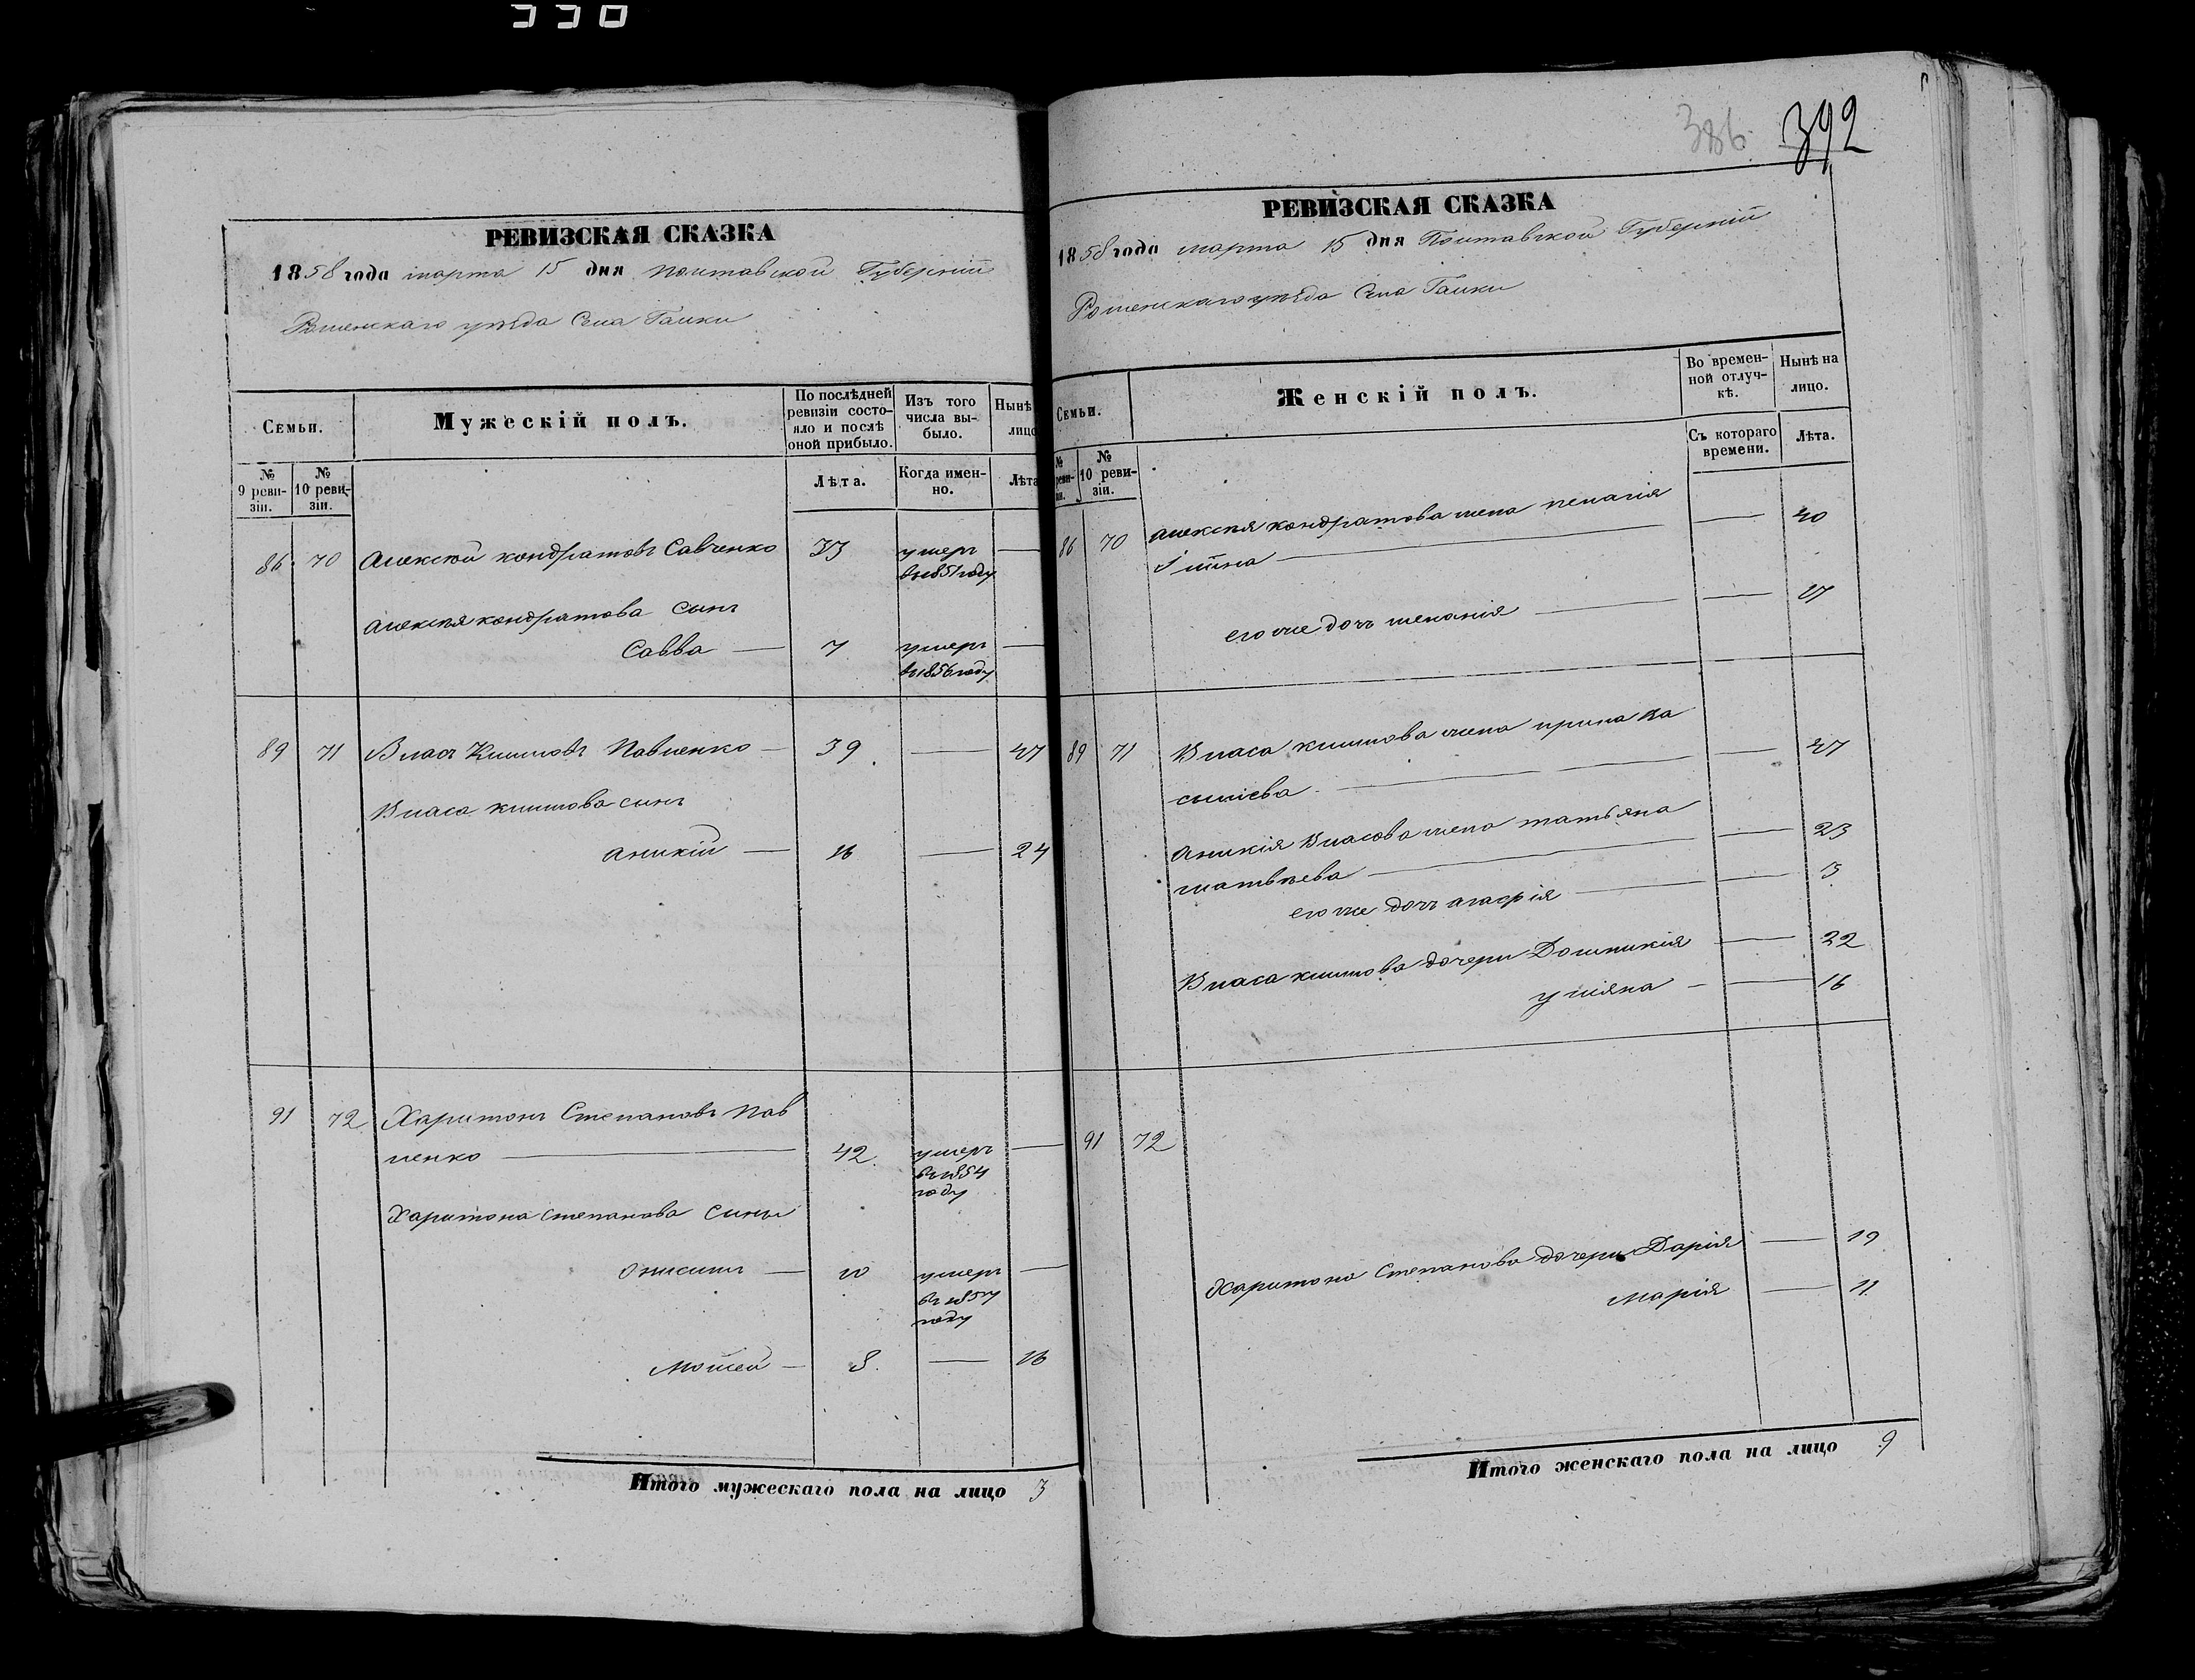 330
РЕВИЗСКАЯ СКАЗКА
1858 года марта 15 дня Полтавской Губерніи
Роменскаго уѣзда Села Галки
Семьи.
Мужескій полъ.
По послѣдней ревизіи состояло и послѣ оной прибыло.
Изъ того числа выбыло.
Нынѣ
лицо
№ 9 ревизіи.
№ 10 ревизіи.
Лѣта.
Когда именно.
Лѣта
86 70 Алексѣй Кондратовъ Савченко 33 умеръ
въ 1851 году
Алексѣя Кондратова сынъ
Савва 7 умеръ
въ 1856 году
89 71 Власъ Климовъ Павленко 39 47
Власа Климова сынъ
Аникій 16 24
91 72 Харитонъ Степановъ Пав
ленко 42 умеръ
въ 1854
году
Харитона Степанова сыны
Онисимъ 10 умеръ
въ 1854
году
Мойсей 8 16
Итого мужескаго пола на лицо 3
386 392
РЕВИЗСКАЯ СКАЗКА
1858 года марта 15 дня Полтавской Губерніи
Роменскаго уѣзда Села Галки
Семьи.
Женскій полъ.
Во временной отлучкѣ.
Нынѣ на лицо.
№
реви-
зіи.
№ 10 ревизіи.
Съ котораго времени.
Лѣта.
86 70 Алексѣя Кондратова жена Пелагія
40
его же дочь Меланія 17
89 71 Власа Климова жена Ирина Ва
сильева 47
Аникія Власова жена Татьяна
Матвѣева 23
его же дочь Агафія 3
Власа Климова дочери Домникія 22
Уліяна 16
91 72
Харитона Степанова дочери Дарія 19
Марія 11
Итого женскаго пола на лицо 9